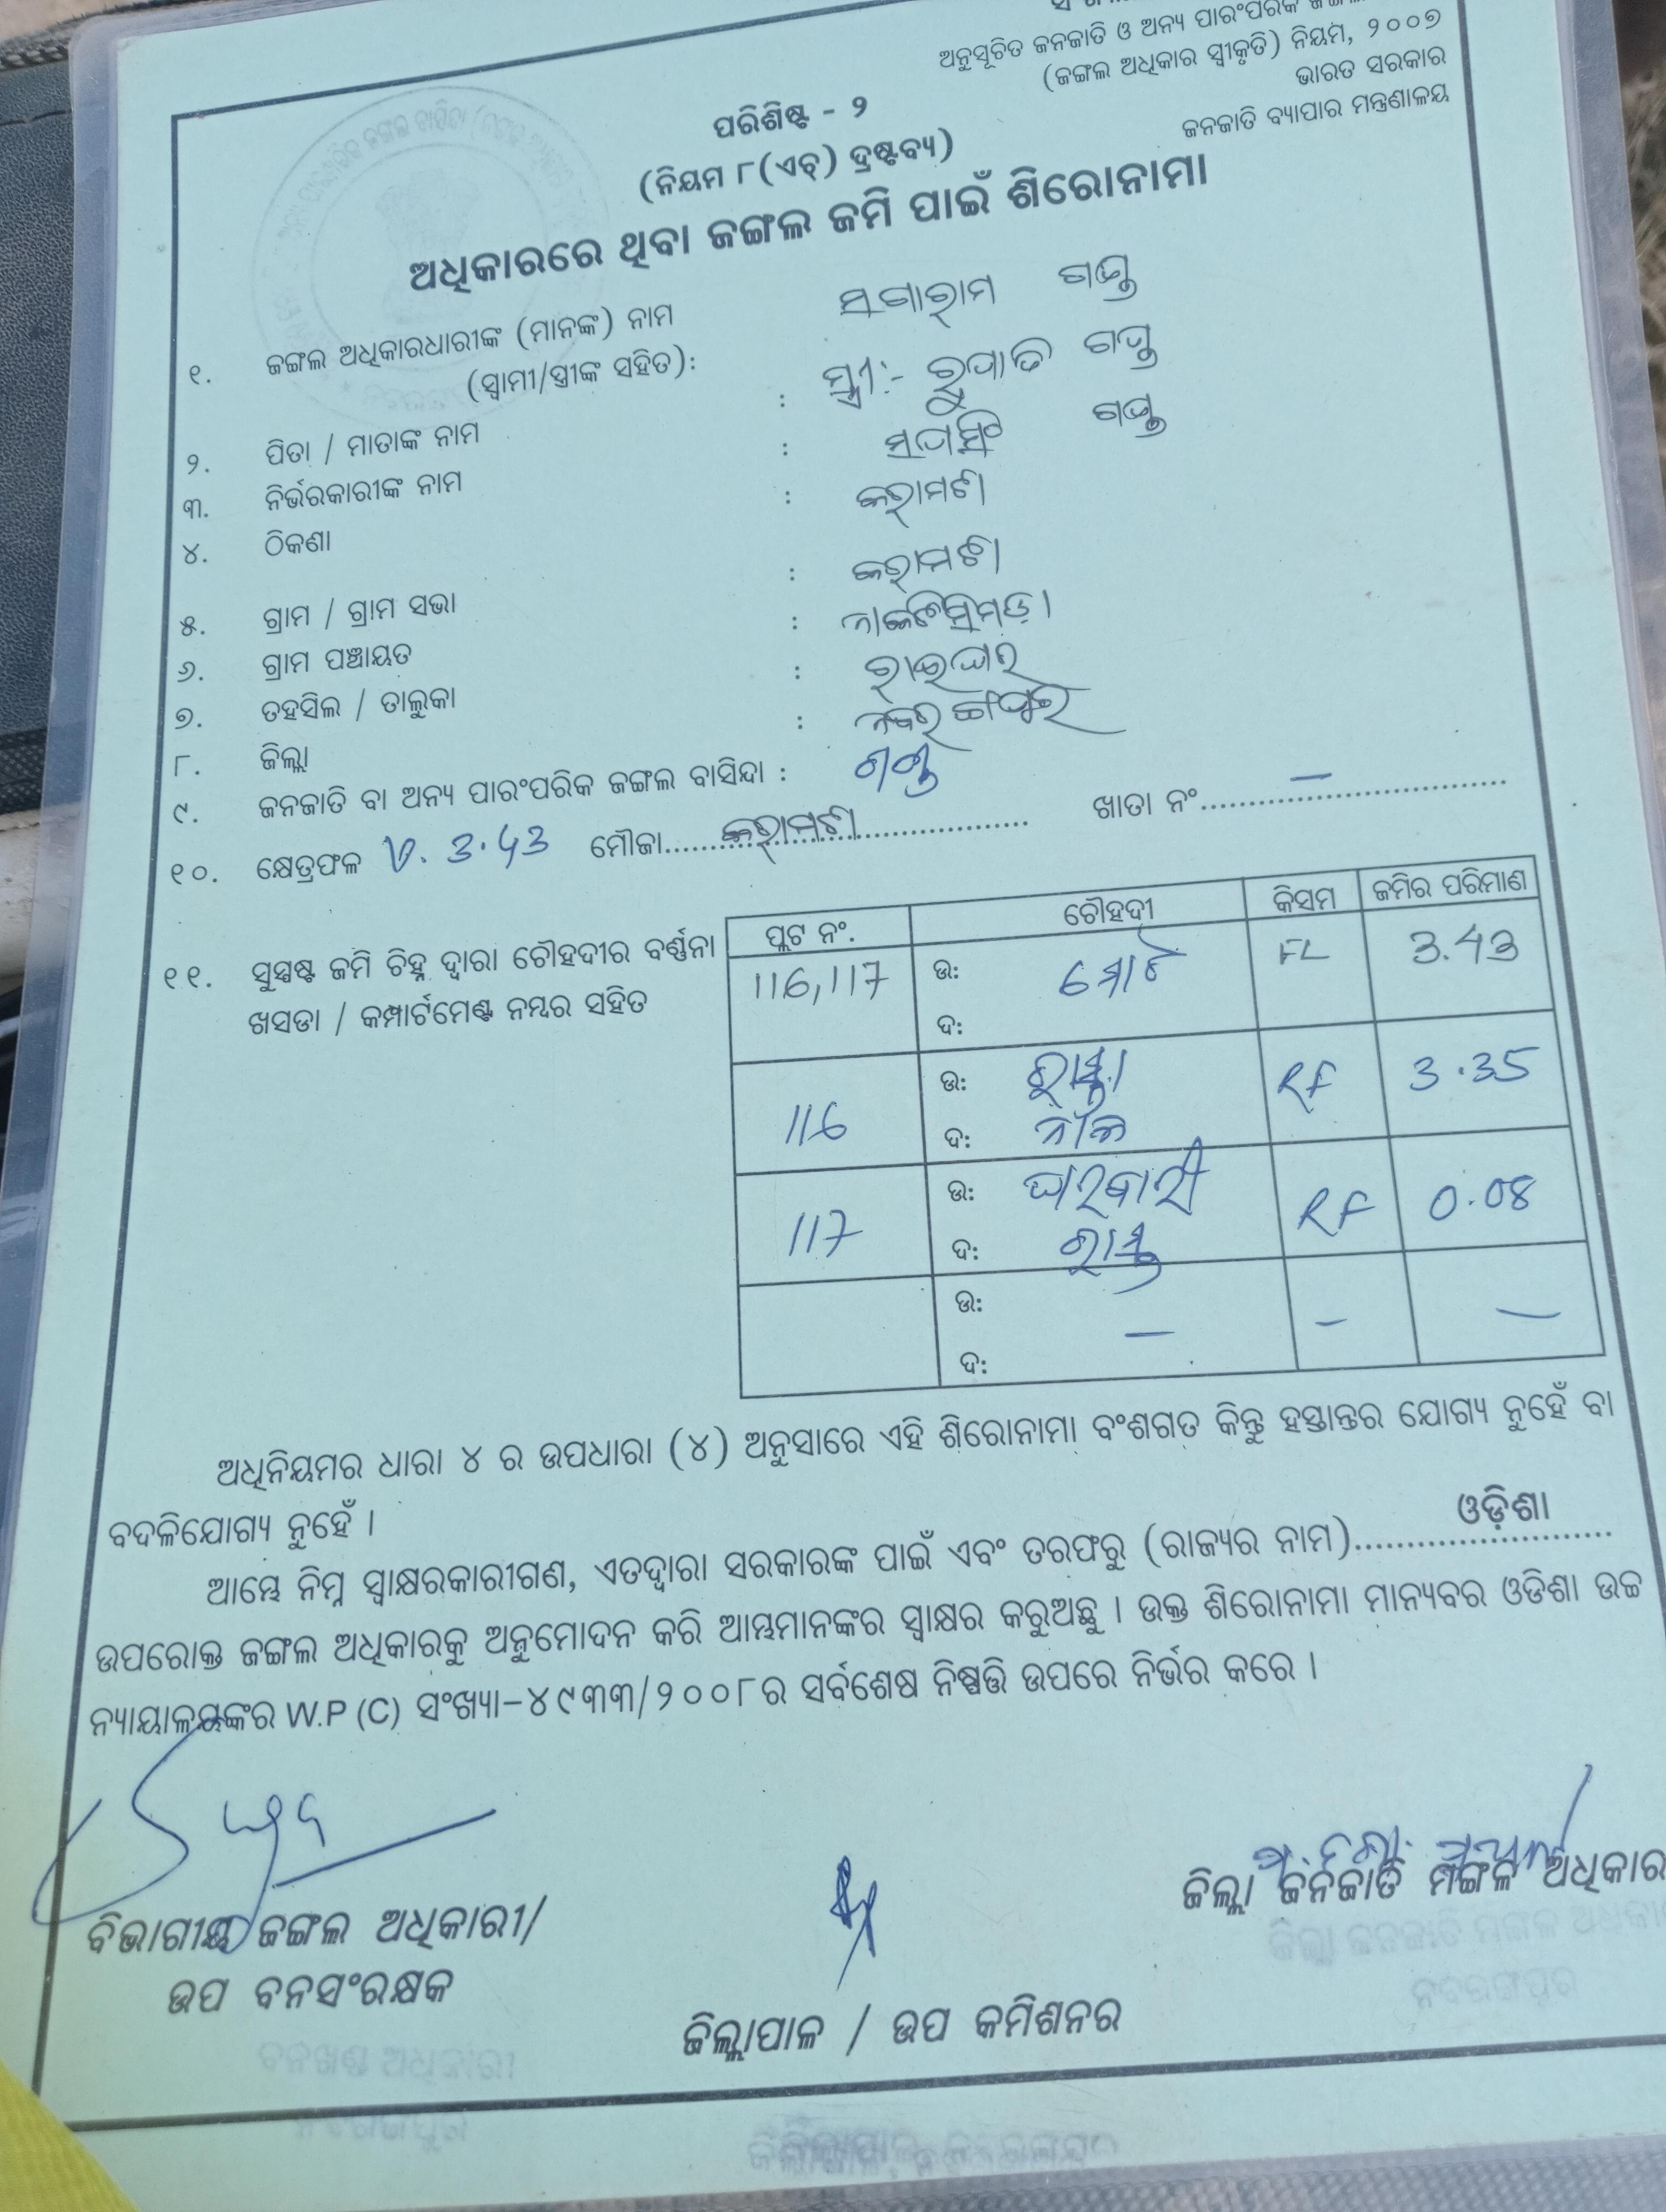 ଅନୁସୂଚିତ ଜନଜାତି ଓ ଅନ୍ୟ ପାରଂପରିକ
(ଜଙ୍ଗଲ ଅଧିକାର ସ୍ୱୀକୃତି) ନିୟମ, ୨୦୦୭
ଭାରତ ସରକାର
ଜନଜାତି ବ୍ୟାପାର ମନ୍ତ୍ରଣାଳୟ
ପରିଶିଷ୍ଟ - ୨
(ନିୟମ ୮(ଏଚ୍) ଦ୍ରଷ୍ଟବ୍ୟ)
ଅଧିକାରରେ ଥିବା ଜଙ୍ଗଲ ଜମି ପାଇଁ ଶିରୋନାମା
୧. ଜଙ୍ଗଲ ଅଧିକାରଧାରୀଙ୍କ (ମାନଙ୍କ) ନାମ ଗଣ୍ଡ
(ସ୍ୱାମୀ/ସ୍ତ୍ରୀଙ୍କ ସହିତ): ସ୍ତ୍ରୀ:- ଗଣ୍ଡ
୨. ପିତା / ମାତାଙ୍କ ନାମ : ଗଣ୍ଡ
୩. ନିର୍ଭରକାରୀଙ୍କ ନାମ :
୪. ଠିକଣା : କରାମଟୀ
୫. ଗ୍ରାମ / ଗ୍ରାମ ସଭା : କରାମଟୀ
୬. ଗ୍ରାମ ପଞ୍ଚାୟତ :
୭. ତହସିଲ / ତାଲୁକା : ରାଇଘର
୮. ଜିଲ୍ଲା : ନବରଙ୍ଗପୁର
୯. ଜନଜାତି ବା ଅନ୍ୟ ପାରଂପରିକ ଜଙ୍ଗଲ ବାସିନ୍ଦା : ଗଣ୍ଡ
୧୦. କ୍ଷେତ୍ରଫଳ 3.43 ମୌଜା..... କରାମଟୀ ..... ଖାତା ନଂ..... –
୧୧. ସୁସ୍ପଷ୍ଟ ଜମି ଚିହ୍ନ ଦ୍ୱାରା ଚୌହଦୀର ବର୍ଣ୍ଣନା
ଖସଡା / କମ୍ପାର୍ଟମେଣ୍ଟ ନମ୍ବର ସହିତ
ପ୍ଲଟ ନଂ. ଚୌହଦୀ କିସମ ଜମିର ପରିମାଣ
116,117 ଉ: ମୋଟ FL 3.43
ଦ:
116 ଉ: ରାସ୍ତା RF 3.35
ଦ:
117 ଉ: ଘରବାରୀ RF 0.08
ଦ: ରାସ୍ତା
ଉ: – – –
ଦ:
ଅଧିନିୟମର ଧାରା ୪ ର ଉପଧାରା (୪) ଅନୁସାରେ ଏହି ଶିରୋନାମା ବଂଶଗତ କିନ୍ତୁ ହସ୍ତାନ୍ତର ଯୋଗ୍ୟ ନୁହେଁ ବା
ବଦଳିଯୋଗ୍ୟ ନୁହେଁ ।
ଆମ୍ଭେ ନିମ୍ନ ସ୍ୱାକ୍ଷରକାରୀଗଣ, ଏତଦ୍ୱାରା ସରକାରଙ୍କ ପାଇଁ ଏବଂ ତରଫରୁ (ରାଜ୍ୟର ନାମ)..... ଓଡ଼ିଶା
ଉପରୋକ୍ତ ଜଙ୍ଗଲ ଅଧିକାରକୁ ଅନୁମୋଦନ କରି ଆମ୍ଭମାନଙ୍କର ସ୍ୱାକ୍ଷର କରୁଅଛୁ । ଉକ୍ତ ଶିରୋନାମା ମାନ୍ୟବର ଓଡିଶା ଉଚ୍ଚ
ନ୍ୟାୟାଳୟଙ୍କର W.P (C) ସଂଖ୍ୟା-୪୯୩୩/୨୦୦୮ର ସର୍ବଶେଷ ନିଷ୍ପତ୍ତି ଉପରେ ନିର୍ଭର କରେ ।
ବିଭାଗୀୟ ଜଙ୍ଗଲ ଅଧିକାରୀ/
ଉପ ବନସଂରକ୍ଷକ
ଜିଲ୍ଲାପାଳ / ଉପ କମିଶନର
ଜିଲ୍ଲା ଜନଜାତି ମଙ୍ଗଳ